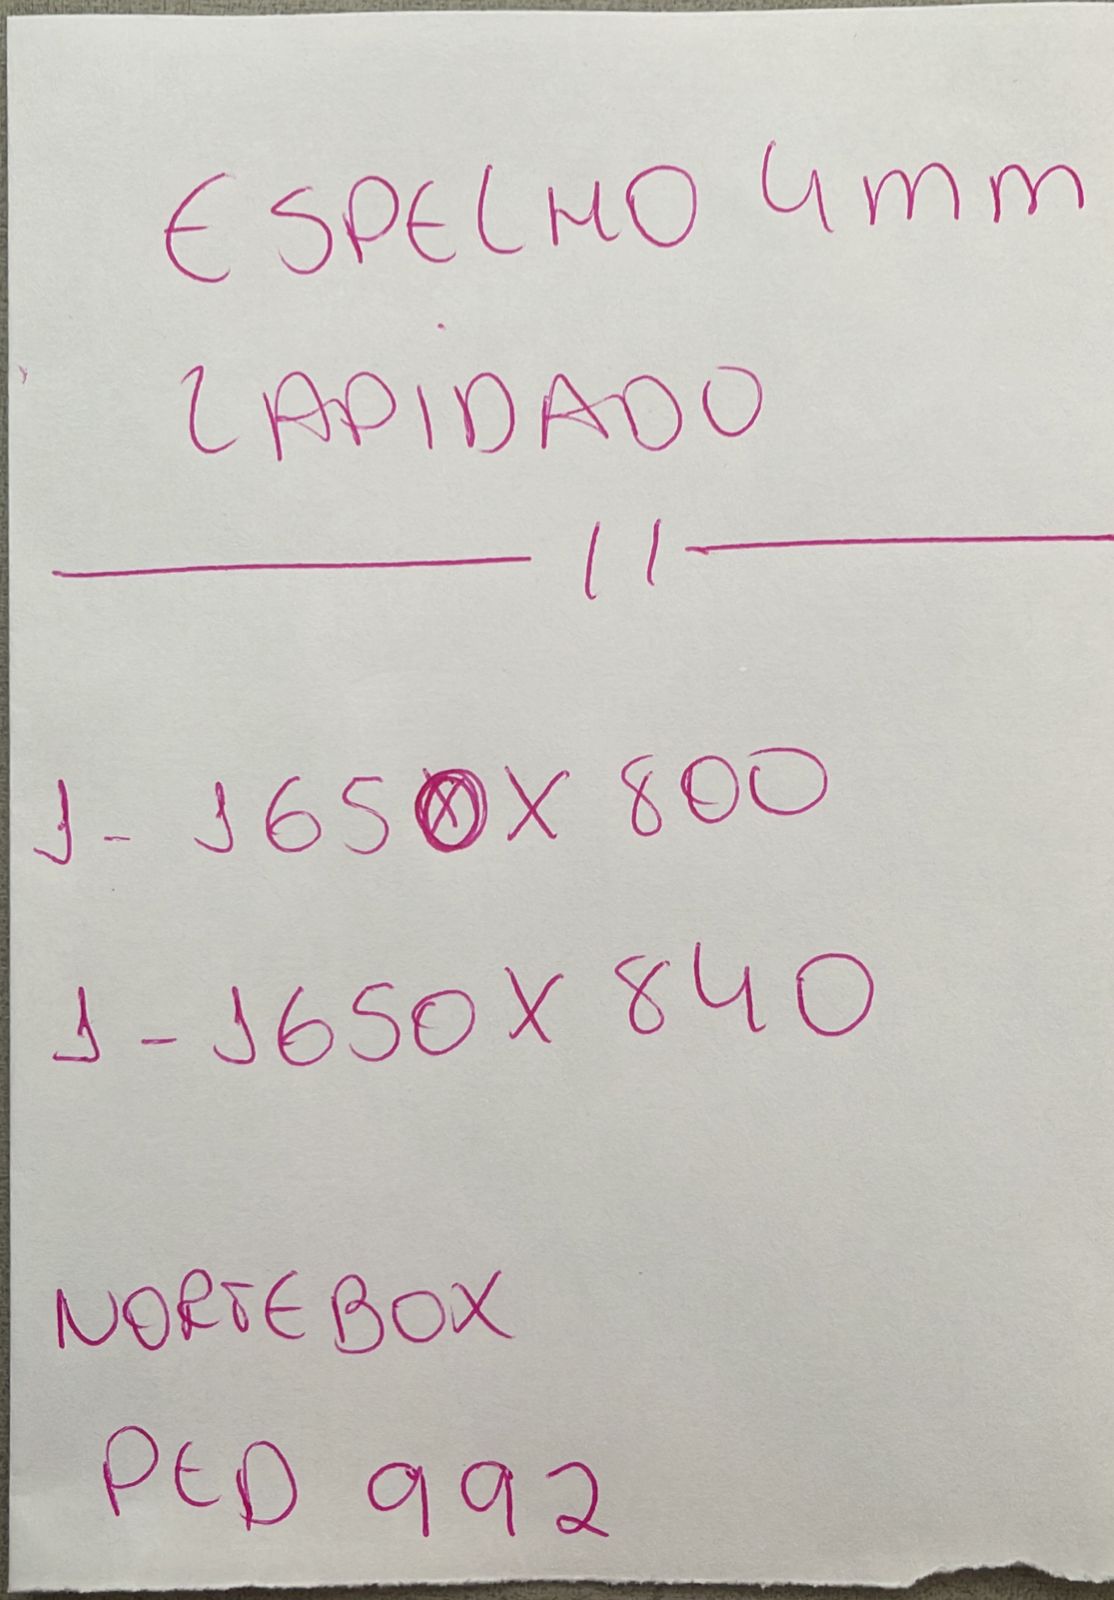 ESPELHO 4mm
LAPIDADO
1- 1650X 800
1- 1650X 840
NORTEBOX
PED 992